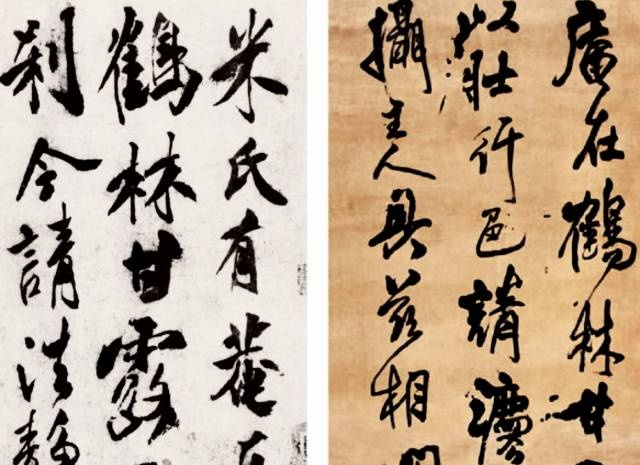 米氏有菴
鶴林甘露
刹今請法
庵在鶴林甘
以壯行色請
攝主人具茲相